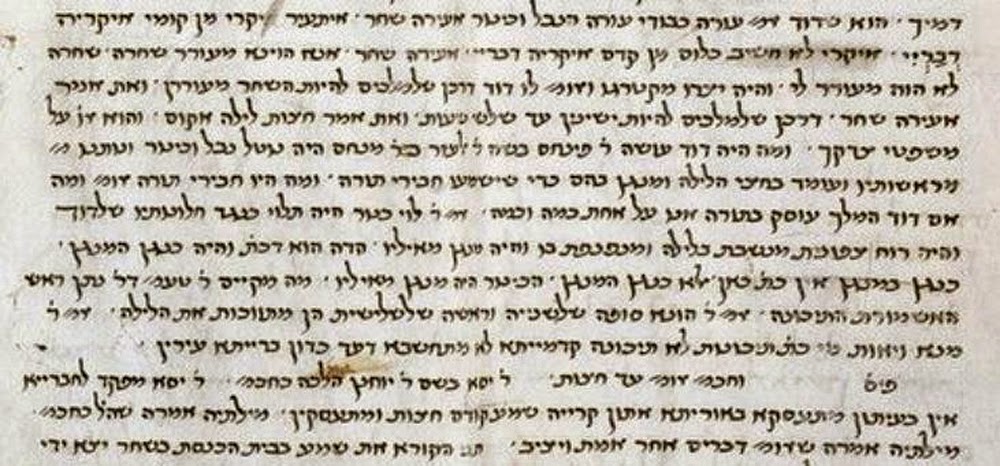 דמיך · הוא שדוד אמ׳ עורה כבודי עורה הנבל וכינור אעירה שחר · איתעיר יקרי מן קומי איקריה
דבריי · איקרי לא חשיב כלום מן קדם איקריה דבריי · אעירה שחר · אנא הוינא מעורר שחרה שחרה
לא הוה מעורר לי · והיה יצרו מקטרגו ואומ׳ לו דוד דרכן שלמלכים להיות השחר מעוררן · ואת אומר
אעירה שחר · דרכן שלמלכים להיות ישינין עד שלש שעות · ואת אמר חצות לילה אקום · והוא או׳ על
משפטי צדקך · ומה היה דוד עושה ר׳ פינחס בשם ר׳ לעזר בר׳ מנחם היה נוטל נבל וכינור ונותנן
מראשותיו ועומד בחצי הלילה ומנגן בהם כדי שישמעו חבירי תורה · ומה היו חבירי תורה אומ׳ ומה
אם דוד המלך עוסק בתורה אנו על אחת כמה וכמה · אמ׳ ר׳ לוי כינור היה תלוי כנגד חלונותיו שלדוד
והיה רוח צפונית מנשבת בלילה ומנפנפת בו והיה מנגן מאיליו · הדה הוא דכת׳ והיה כנגן המנגן ·
כנגן במנגן אין כת׳ כאן אלא כנגן המנגן · הכינור היה מנגן מאיליו · מה מקיים ר׳ טעמ׳ דר׳ נתן ראש
האשמורת התיכונה · אמ׳ ר׳ הונא סופה שלשנייה וראשה שלשלישית הן מתווכות את הלילה · אמ׳ ר׳
מנא ויאות מי כת׳ תיכונות לא תיכונה קדמייתא לא מתחשבא דעד כדון ברייתא עירין ·
פיס׳ וחכמ׳ אומ׳ עד חצות · ר׳ יסא בשם ר׳ יוחנן הלכה כחכמ׳ · ר׳ יסא מפקד לחברייא
אין בעיתון מיתעסקא באוריתא אתון קרייה שמע קודם חצות ומתעסקין · מילתיה אמרה שהל׳ כחכמ׳ ·
מילתיה אמרה שאומ׳ דברים אחר אמת ויציב · תני הקורא את שמע בבית הכנסת בשחר יצא ידי